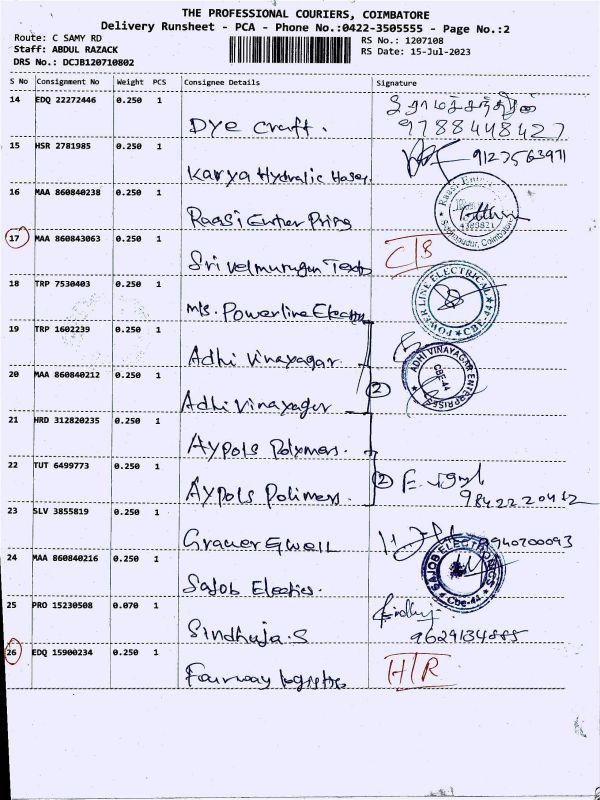 THE PROFESSIONAL COURIERS, COIMBATORE
Delivery Runsheet - PCA - Phone No.:0422-3505555 - Page No.:2
Route: C SAMY RD
RS No.: 1207108
Staff: ABDUL RAZACK
RS Date: 15-Jul-2023
DRS No.: DCJB120710802
S No Consignment No Weight PCS Consignee Details Signature
14 EDQ 22272446 0.250 1 Dye Craft. இராமச்சந்திரன்
9788448427
15 HSR 2781985 0.250 1 Karya Hydralic Hoses. 9127563971
16 MAA 860840238 0.250 1 Raasi Enter Pring
17 MAA 860843063 0.250 1 Sri velmurugun C/B
18 TRP 7530403 0.250 1 M/s. Powerline POWER LINE ELECTRICAL CBE-44
19 TRP 1602239 0.250 1 Adhi Vinayagar.
20 MAA 860840212 0.250 1 Adhi Vinayagar 2 ADHI VINAYAGAR ENTERPRISES CBE-44
21 HRD 312820235 0.250 1 Aypols Polymers.
22 TUT 6499773 0.250 1 Aypols Polimers. 2
9842220412
23 SLV 3855819 0.250 1 Grauer & Weil 9940700093
24 MAA 860840216 0.250 1 Sajob SAJOB ELECTRONICS Cbe-44
25 PRO 15230508 0.070 1 Sindhuja.S Sindhuj
9629134885
26 EDQ 15900234 0.250 1 Fourway logistics H/R